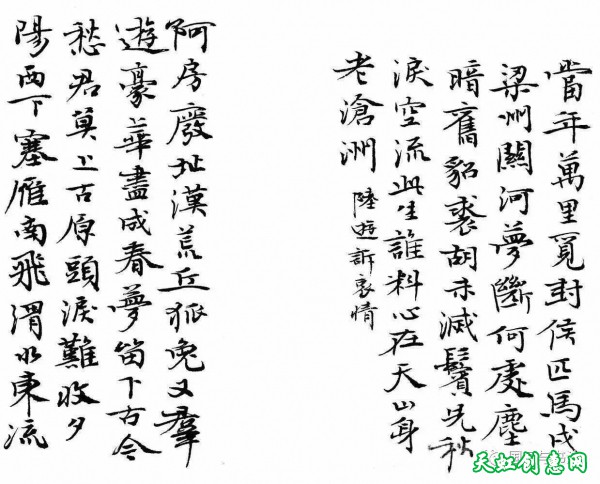 當年萬里覓封侯匹馬戍
梁州關河夢斷何處塵
暗舊貂裘胡未滅鬢先秋
淚空流此生誰料心在天山身
老滄洲 陸遊訴衷情
阿房廢址漢荒丘狐兔又羣
遊豪華盡成春夢留下古今
愁君莫上古原頭淚難收夕
陽西下塞雁南飛渭水東流
天虹创意网